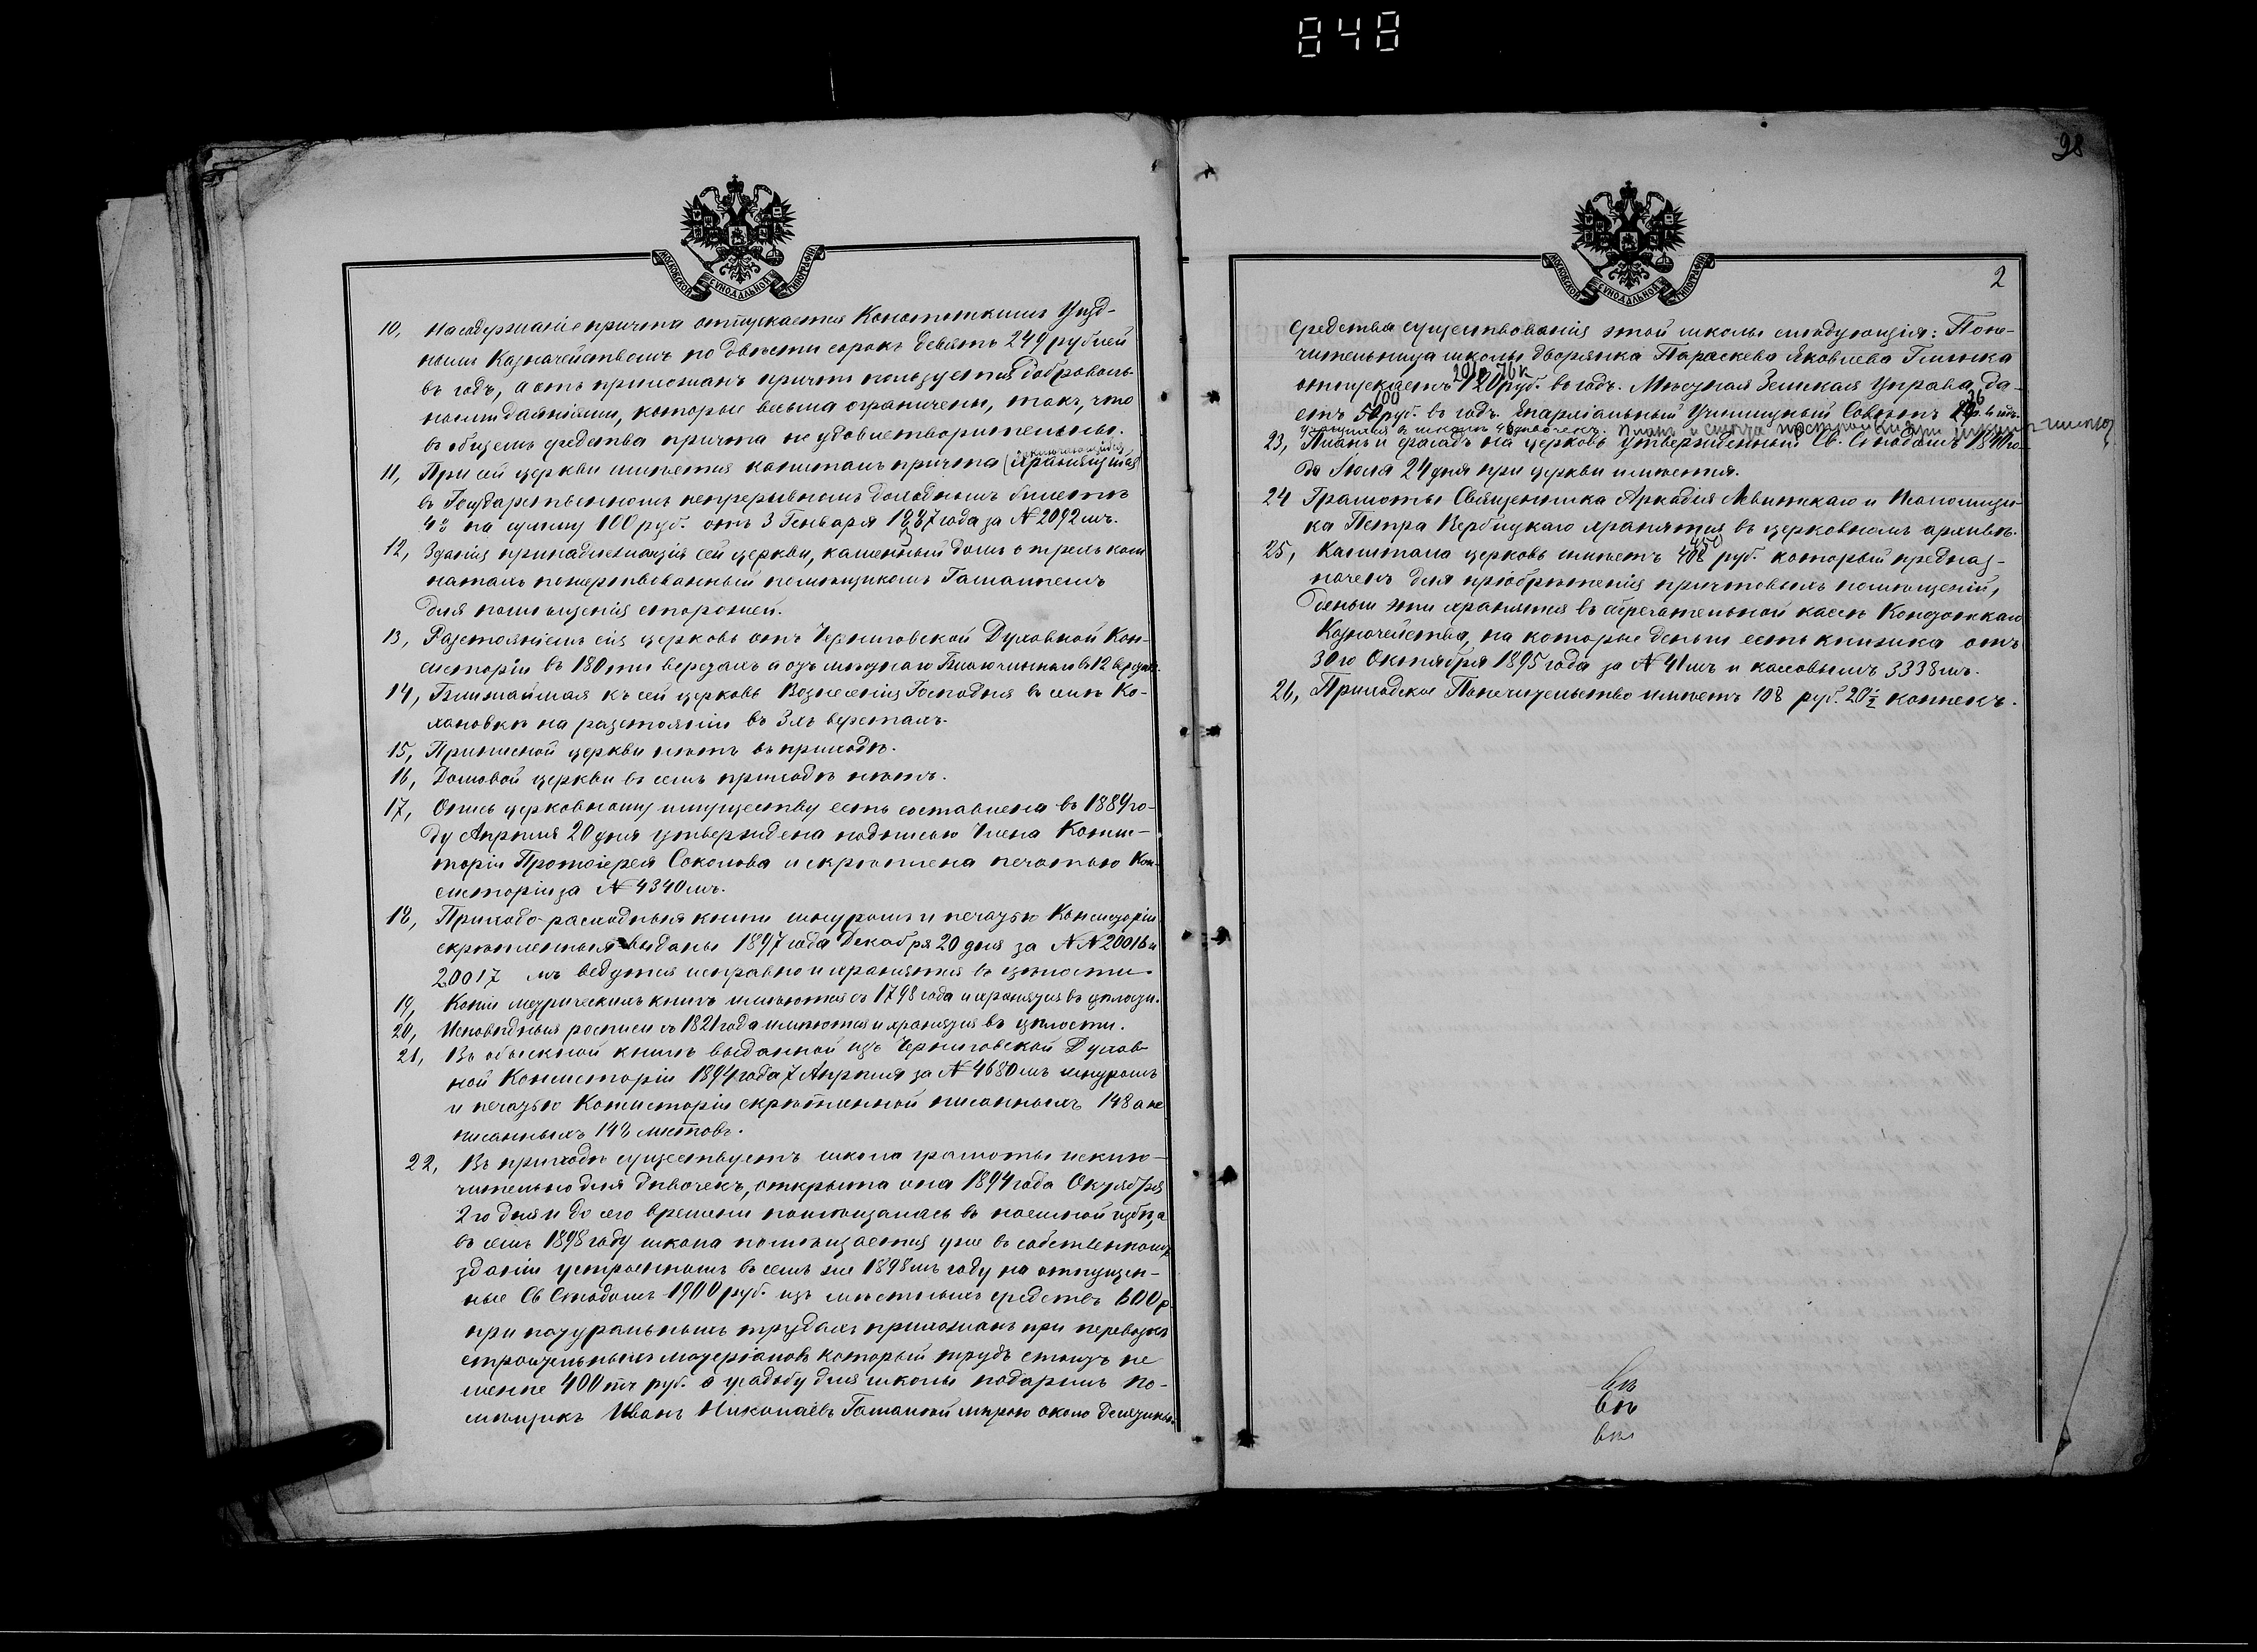 848
98
МОСКОВСКОЙ СѴНОДАЛЬНОЙ ТИПОГРАФІИ
10, На содержаніе причта отпускается Конотопскимъ Уѣзд-
нымъ Казначействомъ по двѣсти сорокъ девять 249 рублей
въ годъ, а отъ прихожанъ причтъ пользуется доброволь-
ными даяніями, которые весьма ограничены, такъ, что
въ общемъ средства причта не удовлетворительны.
11, При сей церкви имѣется капиталъ причта (
въ Государственномъ непрерывномъ доходномъ билетѣ
4% на сумму 100 руб. отъ 3 Генваря 1887 года за № 2092мъ.
12, Зданія принадлежащія сей церкви, каменный домъ о трехъ ком
натахъ пожертвованный помѣщикомъ
для помѣщенія сторожей.
13, Разстояніемъ сія церковь отъ Черниговской Духовной Кон-
систоріи въ 180ти верстахъ а отъ мѣстнаго Благочиннаго въ 12 верст.
14, Ближайшая къ сей церковь Вознесенія Господня въ селѣ Ко-
хановкѣ на разстояніи въ 3хъ верстахъ.
15, Приписной церкви нѣтъ въ приходѣ.
16, Домовой церкви въ семъ приходѣ нѣтъ.
17, Опись церковному имуществу есть составлена въ 1889 го-
ду Апрѣля 20 дня утверждена подписью Члена Консис-
торіи Протоіерея Соколова и скрѣплена печатью Кон-
систоріи за № 4340мъ.
18, Приходо-расходныя книги шнуромъ и печатью Консисторіи
скрѣпленныя выданы 1897 года Декабря 20 дня за №№ 20016 и
20017 мъ ведутся исправно и хранятся въ цѣлости.
19, Копіи метрическихъ книгъ имѣются съ 1798 года и хранятся въ цѣлости.
20, Исповѣдныя росписи съ 1821 года имѣются и хранятся въ цѣлости.
21, Въ обыскной книгѣ выданной изъ Черниговской Духов-
ной Консисторіи 1894 года 7 Апрѣля за № 4680мъ шнуромъ
и печатью Консисторіи скрѣпленной писанныхъ 148 а не
писанныхъ 148 листовъ.
22, Въ приходѣ существуетъ школа грамоты исклю-
чительно для дѣвочекъ, открыта она 1894 года Октября
2го дня и до сего времени помѣщалась въ наемной избѣ, а
въ семъ 1898 году школа помѣщается уже въ собственномъ
зданіи устроенномъ въ семъ же 1898мъ году на отпущен-
ные Св Синодомъ 1900 руб. изъ мѣстныхъ средствъ 600 р.
при натуральныхъ трудахъ прихожанъ при перевозкѣ
строительныхъ матеріаловъ который трудъ стоитъ не
менѣе 400тъ руб. а усадьбу для школы подарилъ по-
мѣщикъ Иванъ Николаевъ мѣрою около десятины.
МОСКОВСКОЙ СѴНОДАЛЬНОЙ ТИПОГРАФІИ
2
Средства существованія этой школы слѣдующія: Попе-
чительница школы дворянка Параскева Яковлева Глинка
201 р. 76 к
отпускаетъ 120 руб. въ годъ. Мѣстная Земская Управа да-
100
етъ 50 руб. въ годъ. Епархіальный Училищный Совѣтъ
въ школѣ дѣвочекъ. Планъ и смѣта
23, Планъ и фасадъ на церковь утвержденный Св. Синодомъ 1840 го-
да Іюля 24 дня при церкви имѣются.
24 Грамоты Священника Аркадія и Псаломщи-
ка Петра Вербицкаго хранятся въ церковномъ архивѣ.
450
25, Капитала церковь имѣетъ 408 руб. который предназ-
наченъ для пріобрѣтенія причтовыхъ помѣщеній,
деньги эти хранятся въ сберегательной кассѣ
Казначейства, на которые деньги есть книжка отъ
30го Октября 1895 года за № 41мъ и кассовымъ 3338мъ.
26, Приходское Попечительство имѣетъ 108 руб. 20½ копекъ.